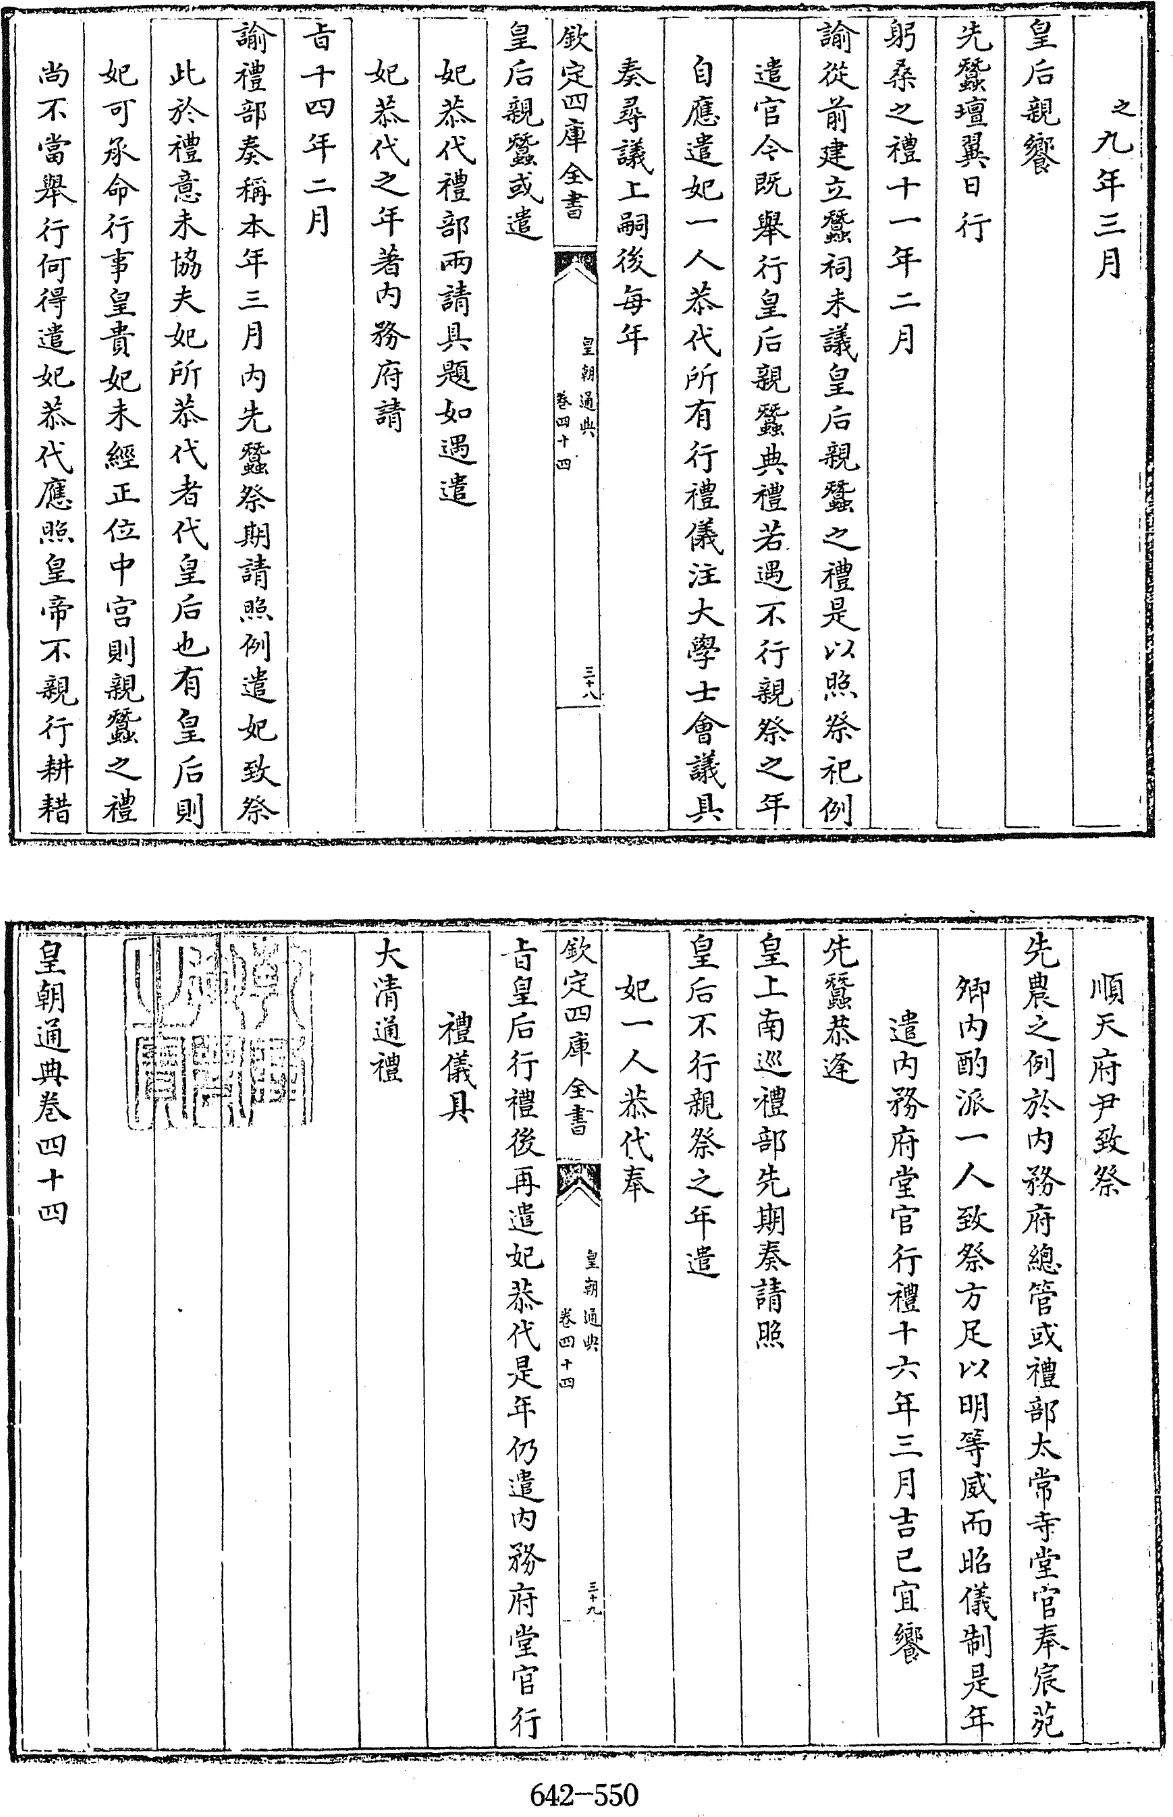 之九年三月
皇后親饗
先蠶壇翼日行
躬桑之禮十一年二月
諭從前建立蠶祠未議皇后親蠶之禮是以照祭祀例
遣官今既舉行皇后親蠶典禮若遇不行親祭之年
自應遣妃一人恭代所有行禮儀注大學士會議具
奏尋議上嗣後每年
欽定四庫全書
皇朝通典
卷四十四
三十八
皇后親蠶或遣
妃恭代禮部兩請具題如遇遣
妃恭代之年著內務府請
旨十四年二月
諭禮部奏稱本年三月內先蠶祭期請照例遣妃致祭
此於禮意未協夫妃所恭代者代皇后也有皇后則
妃可承命行事皇貴妃未經正位中宮則親蠶之禮
尚不當舉行何得遣妃恭代應照皇帝不親行耕耤
順天府尹致祭
先農之例於內務府總管或禮部太常寺堂官奉宸苑
卿內酌派一人致祭方足以明等威而昭儀制是年
遣內務府堂官行禮十六年三月吉巳宜饗
先蠶恭逢
皇上南巡禮部先期奏請照
皇后不行親祭之年遣
妃一人恭代奉
欽定四庫全書
皇朝通典
卷四十四
三十九
旨皇后行禮後再遣妃恭代是年仍遣內務府堂官行
禮儀具
大清通禮
皇朝通典卷四十四
642-550